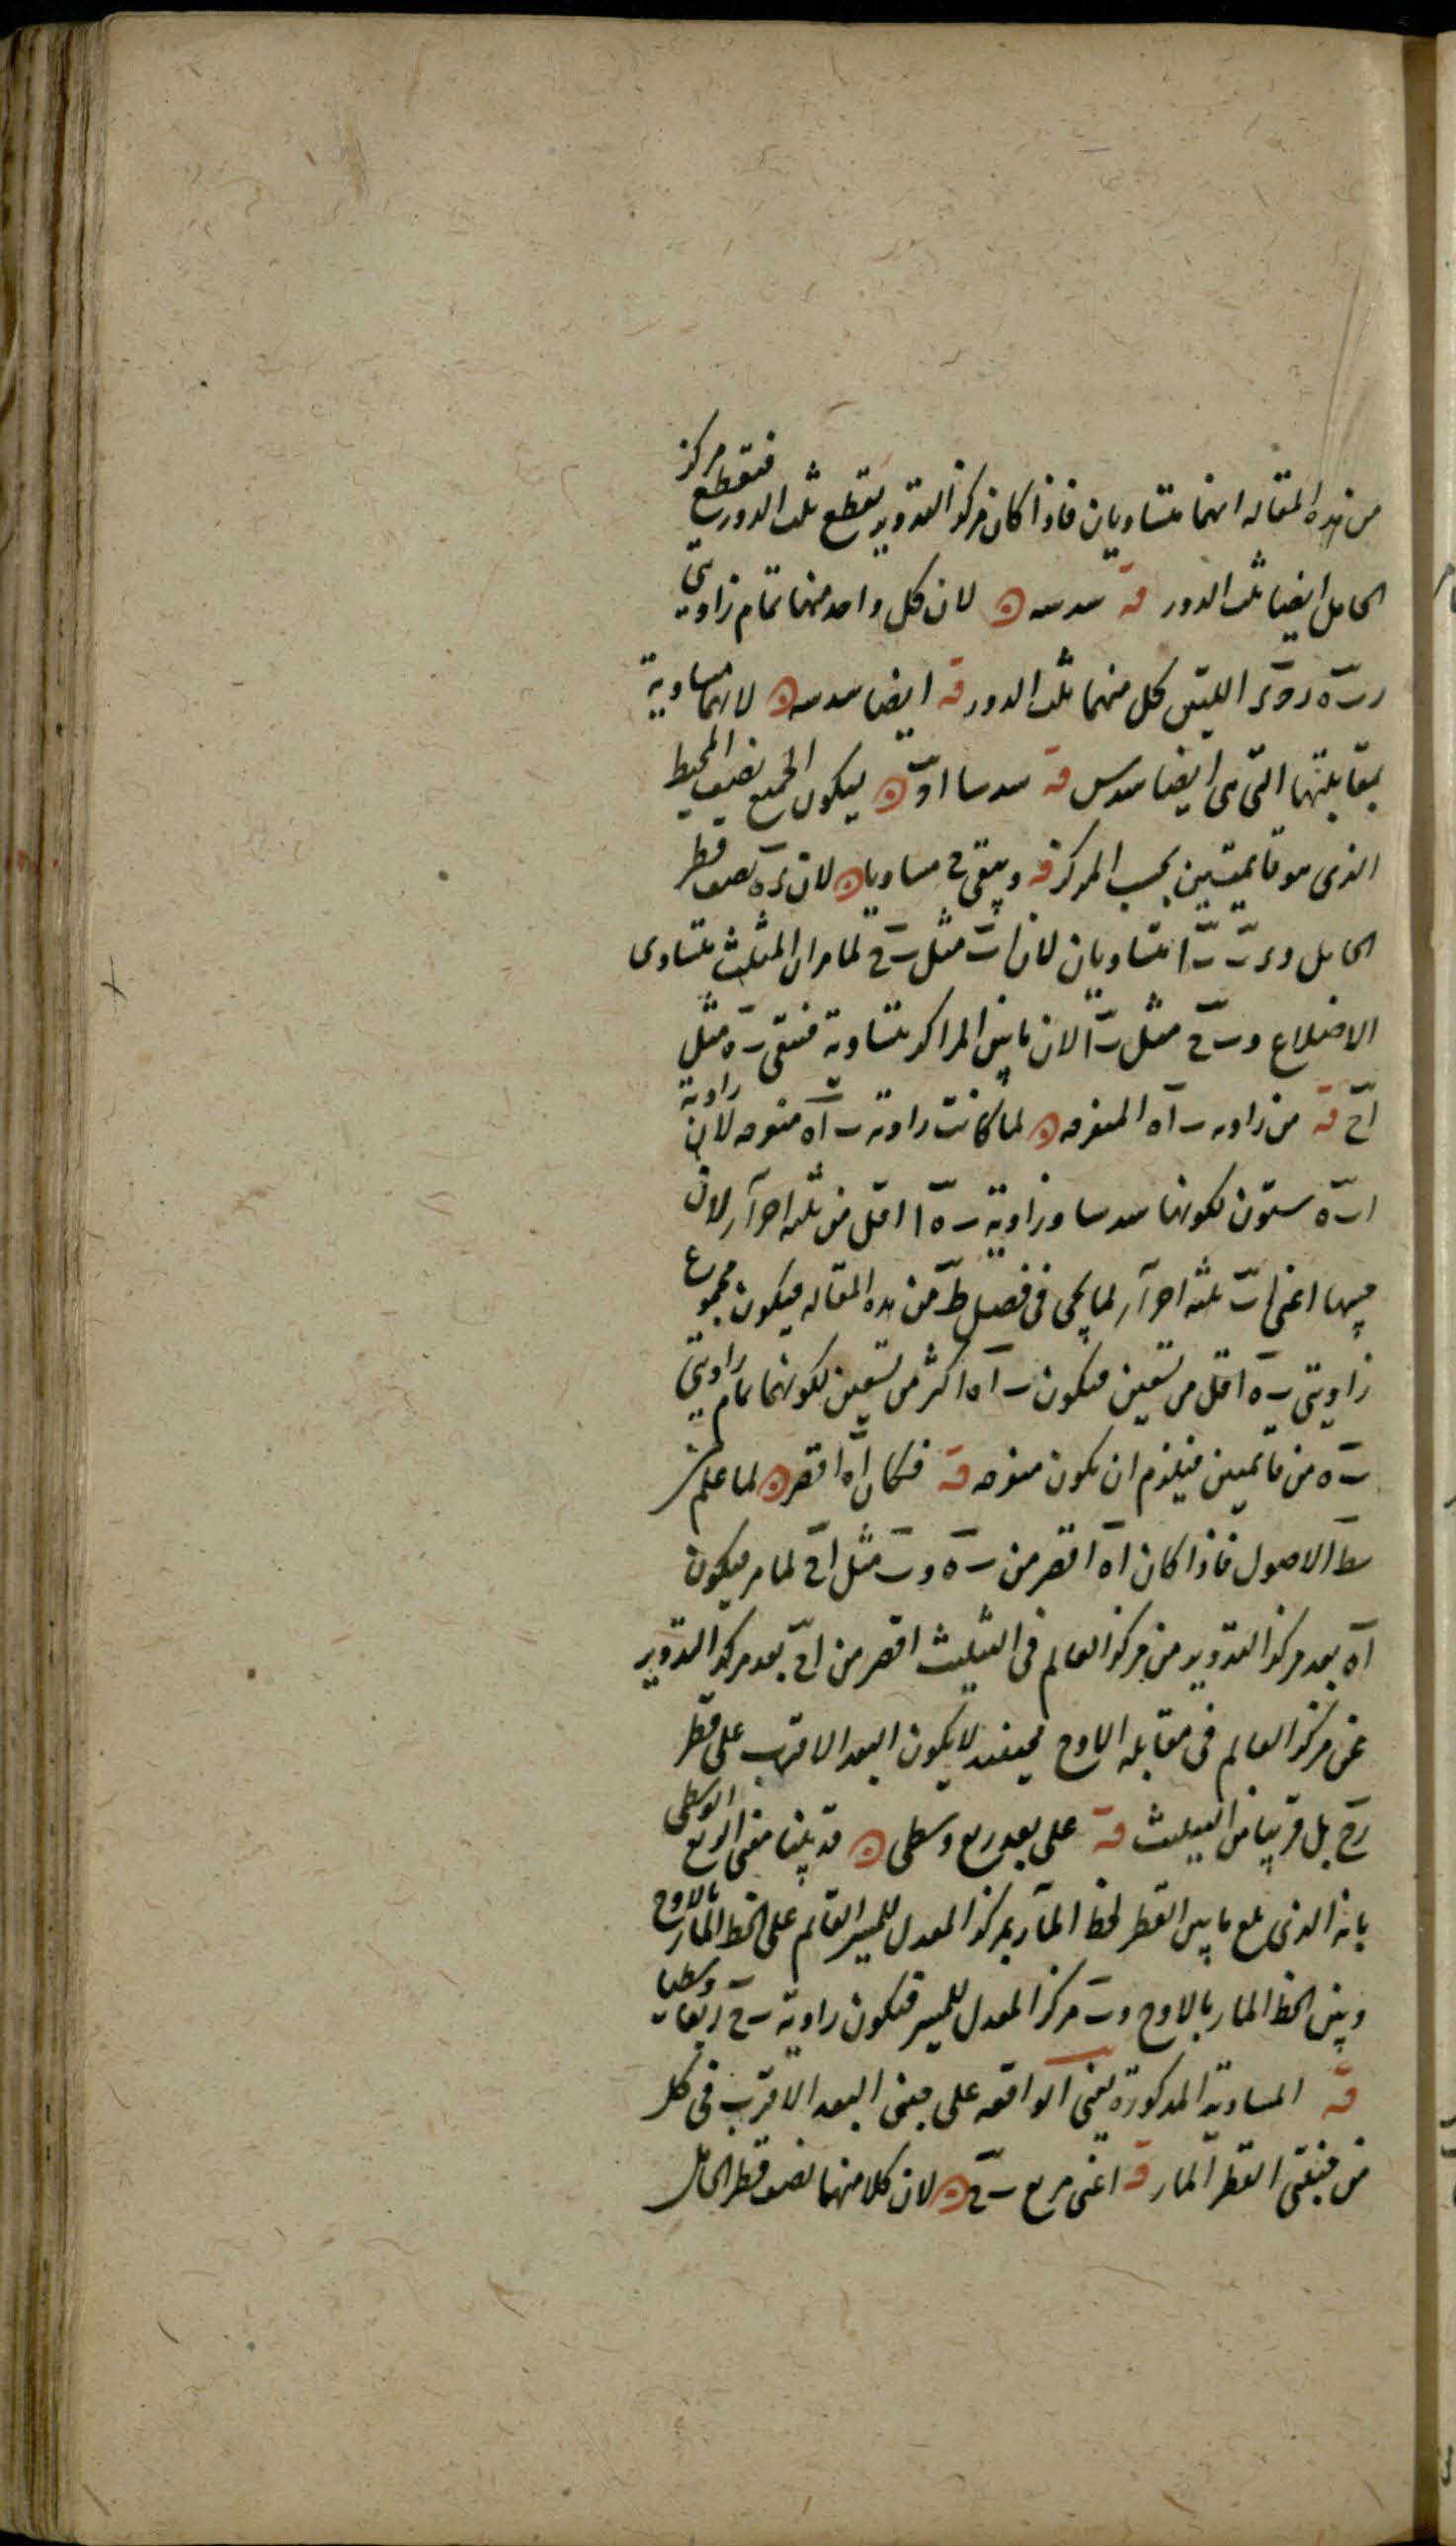 من هذه المقاله انهما متساويان فاذا كان مركز التدوير يقطع ثلث الدور فيقطع مركز
الحامل ايضا ثلث الدور قه سدسه لان كل واحد منهما تمام زاويتى
اللتين كل منهما ثلث الدور قه ايضا سدسه لانها مساوية
لمقابلتها التى هى ايضا سدس قه سدسا ليكون الجميع نصف المحيط
الذى هو قائمتين بحسب المركز قه ويبقى مساويا لان نصف قطر
الحامل متساويان لان اب مثل ب ح لما مر ان المثلث متساوى
الاضلاع مثل لان ما بين المراكز متساوية فبقى ب ه مثل
اح قه من زاويه ب اه المنفرجه لما كانت زاوية ب اه منفرجه لان زاوية
ا ب ه ستون لكونها سدسا وزاوية ب ه ا اقل من ثلثه اجزآء لان
جيبها اعنى اب ثلثه اجزآء لما يجى فى فصل ط من هذه المقاله فيكون مجموع
زاويتى ب ه اقل من تسعين فيكون ب اه اكثر من تسعين لكونها تمام زاويتى
ب ه من قائمتين فيلزم ان يكون منفرجه قه فكان اه اقصر لما علم من
الاصول فاذا كان اه اقصر من ب ه وب ه مثل اح لما مر فيكون
اه بعد مركز التدوير من مركز العالم فى التثليث اقصر من اح بعد مركز التدوير
عن مركز العالم فى مقابله الاوج فحينئذ لا يكون البعد الاقرب على قطر
بل قريبا من التثليث قه على بعد ربع وسطى قد بينا معنى الربع الوسطى
بانه الذى يقع ما بين القطر الخط المآر بمركز المعدل للمسير القائم على الخط المآر بالاوج
وبين الخط المار بالاوج وب مركز المعدل للمسير فيكون زاوية ب ح ربعا وسطيا
قه المساوية المذكورة يعنى الواقعه على جنبى البعد الاقرب فى كل
من جنبتى القطر المار قه اعنى مربع ب ح لان كلا منهما نصف قطر الحامل